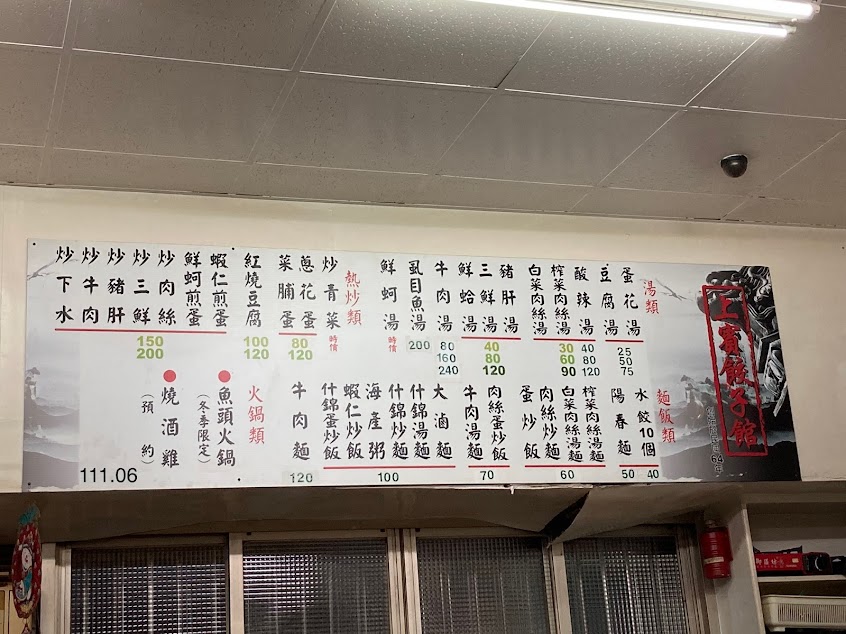 上賓餃子館
湯類
蛋花湯
豆腐湯
25
50
75
酸辣湯
40
80
120
榨菜肉絲湯
白菜肉絲湯
30
60
90
豬肝湯
三鮮湯
鮮蛤湯
40
80
120
牛肉湯
80
160
240
虱目魚湯
200
鮮蚵湯
時價
熱炒類
炒青菜
時價
蔥花蛋
菜脯蛋
80
120
紅燒豆腐
100
120
蝦仁煎蛋
鮮蚵煎蛋
炒肉絲
炒三鮮
炒豬肝
炒牛肉
炒下水
150
200
麵飯類
水餃10個
40
陽春麵
50
榨菜肉絲湯麵
白菜肉絲湯麵
肉絲炒麵
蛋炒飯
60
肉絲蛋炒飯
牛肉湯麵
70
大滷麵
什錦湯麵
什錦炒麵
海產粥
蝦仁炒飯
什錦蛋炒飯
100
牛肉麵
120
火鍋類
●魚頭火鍋
(冬季限定)
●燒酒雞
(預約)
111.06